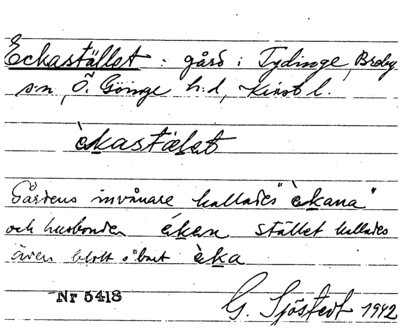 Eckastället : gård i Tydinge, Broby
s:n, Ö. Göinge h:d, Krist. l.
èkastælet
Gårdens invånare kallades "èkana"
och husbonden éken stället kallades
även blott o bart èka
Nr 5418
G. Sjöstedt 1942